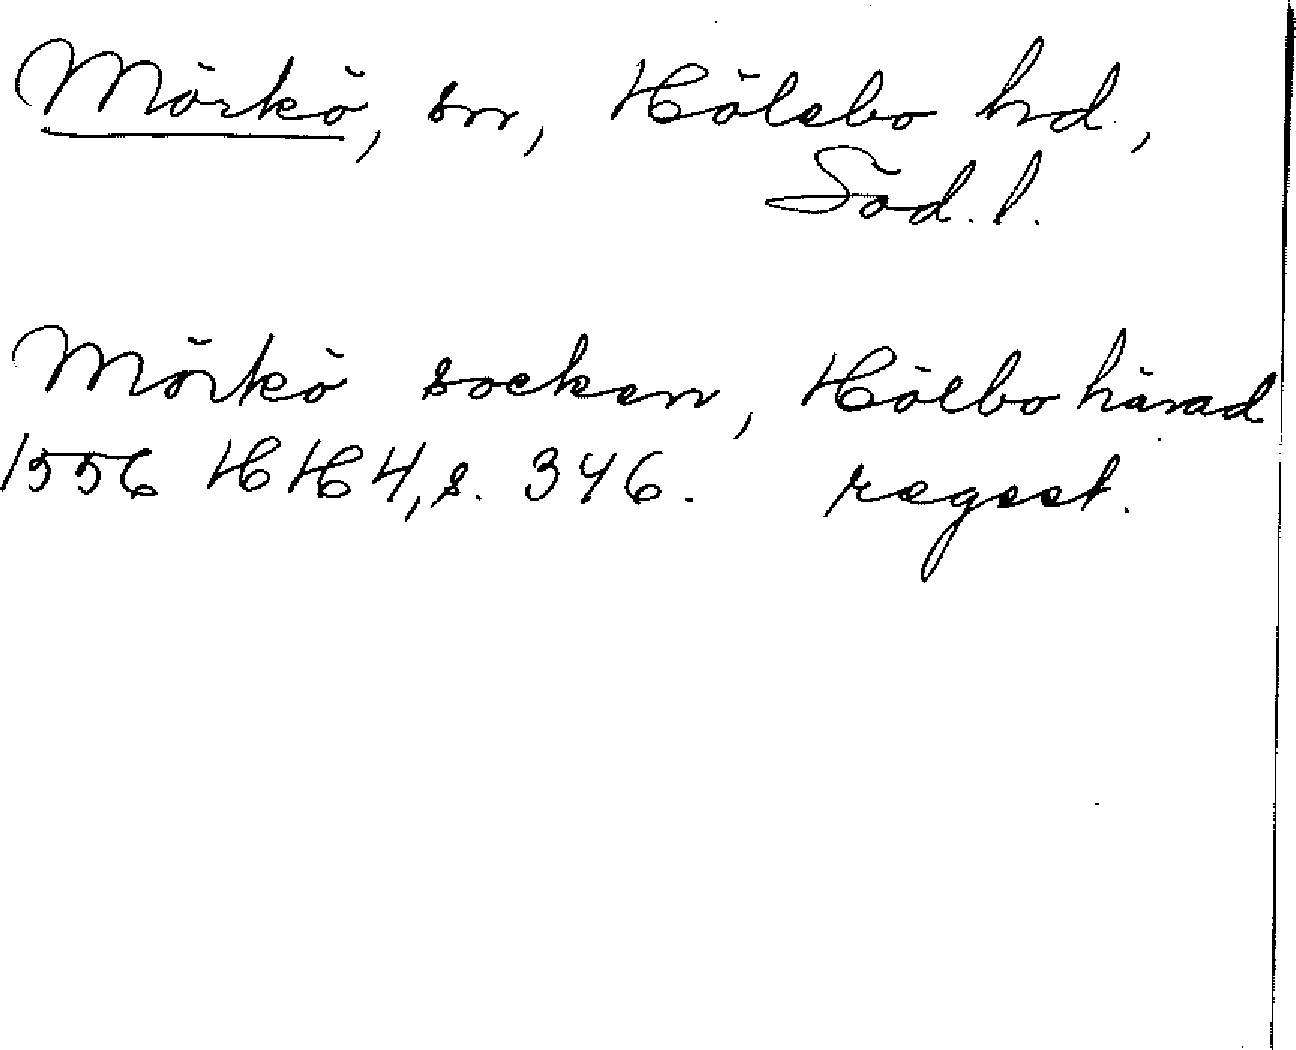 Mörkö, sn, Hölebo hd.,
Söd. l.
Mörkö socken, Hölbo härad
1556 HH 4, s. 346. regest.